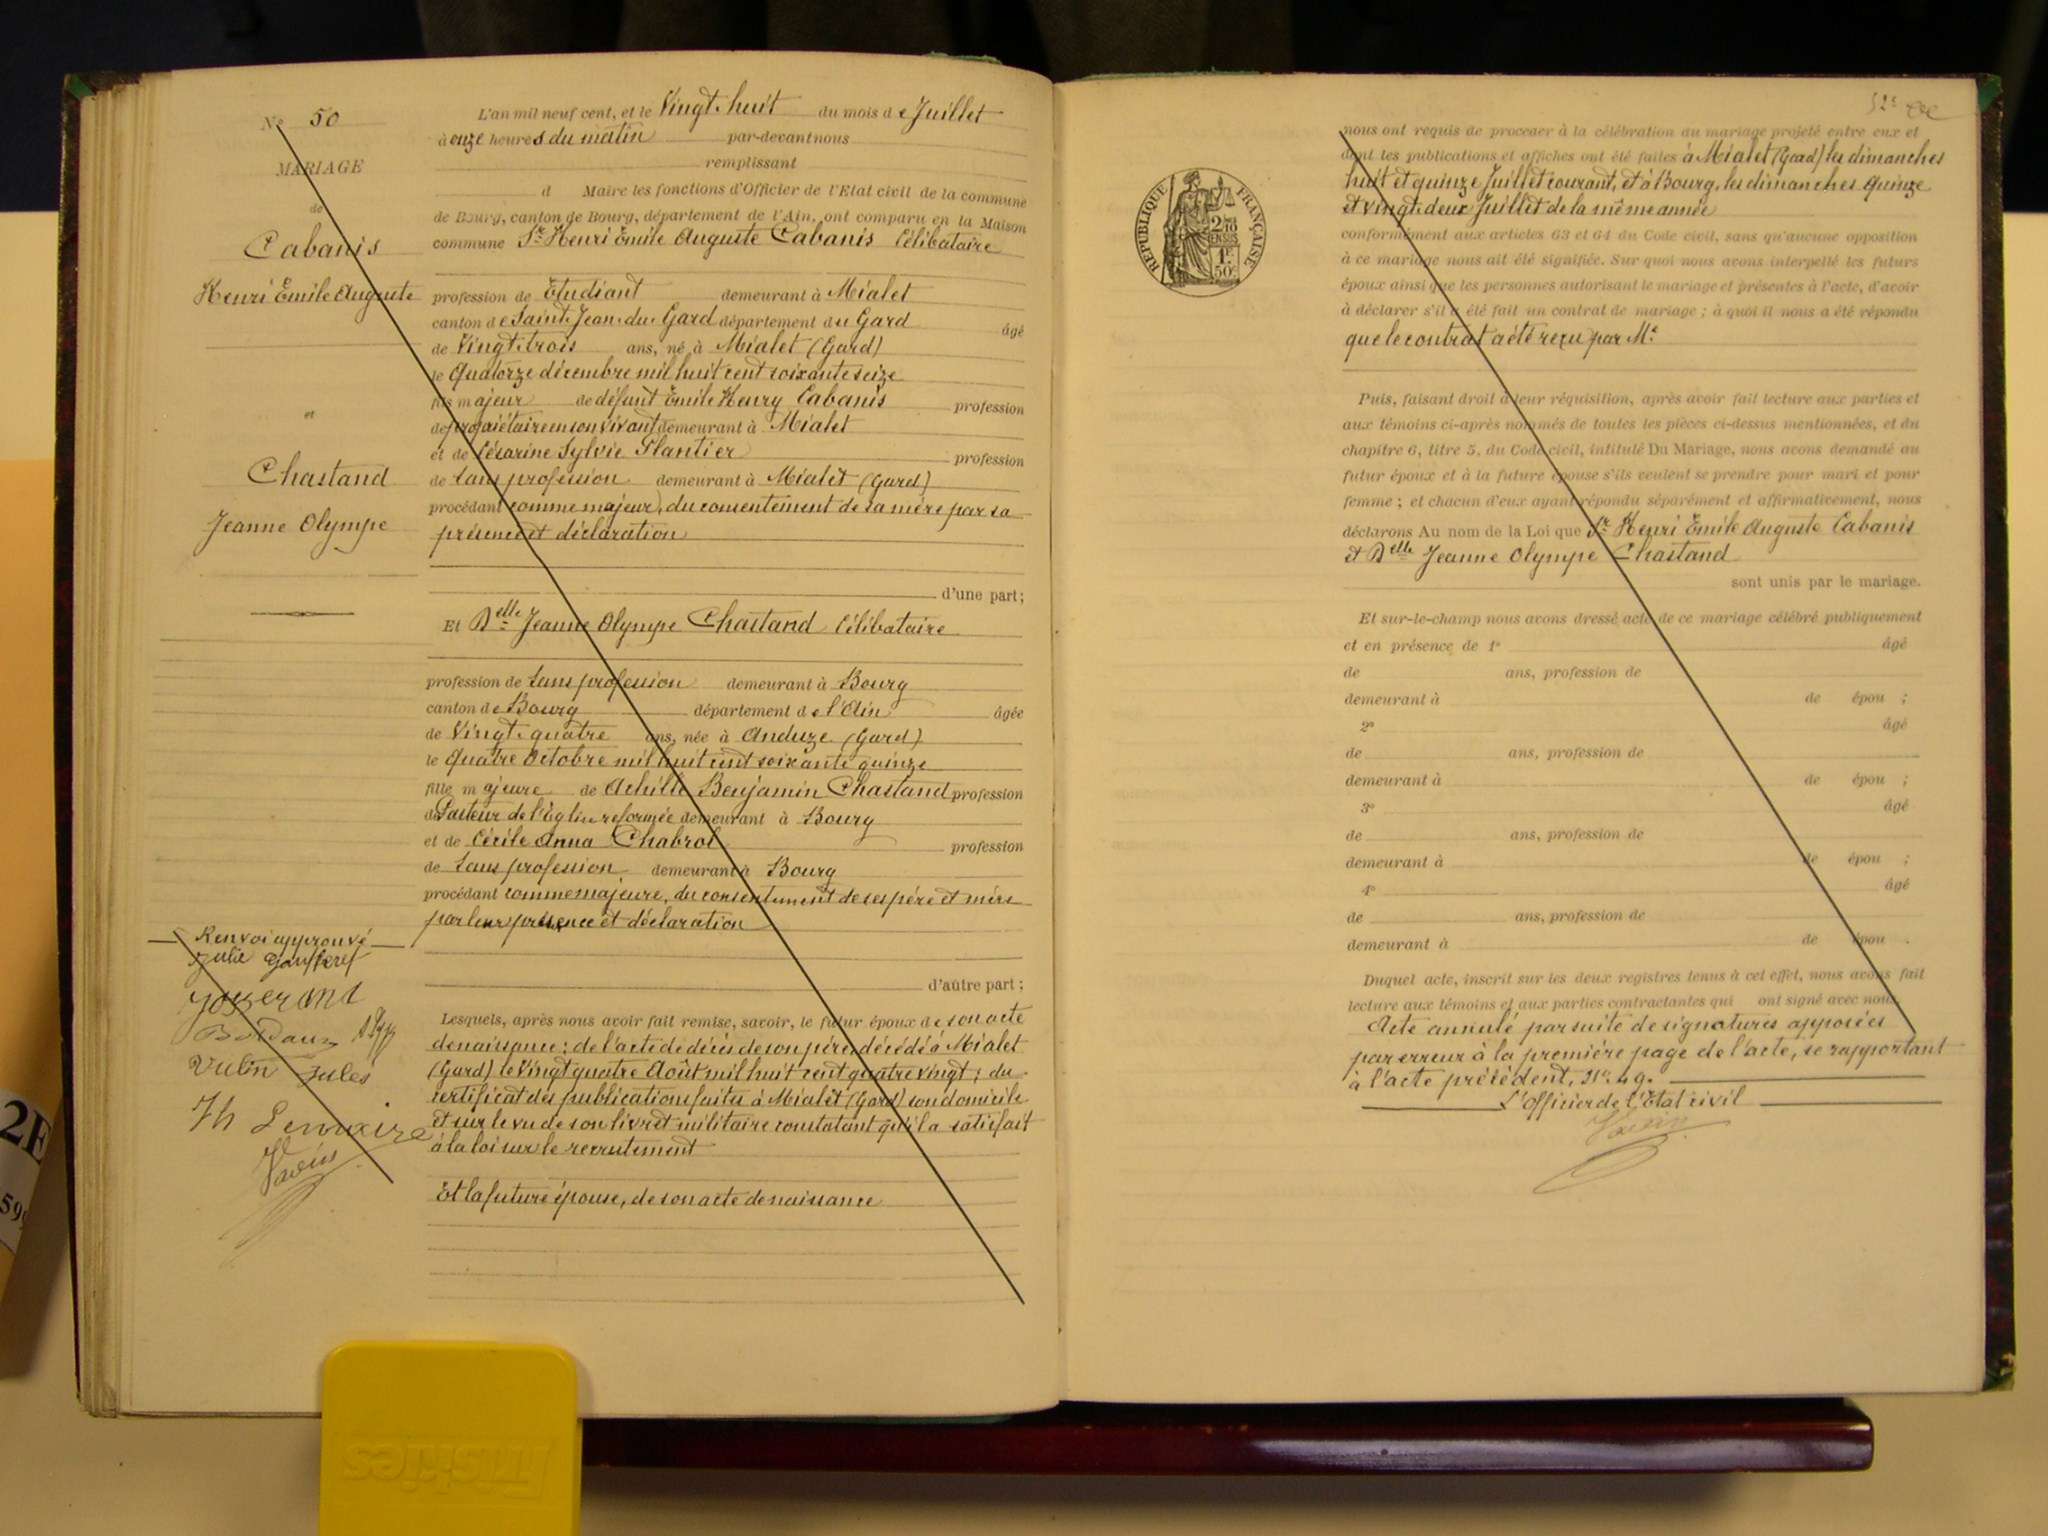 N° 50
MARIAGE
de
Cabanis
Henri Emile Auguste
et
Chastand
Jeanne Olympe
Renvoi approuvé
Julie
Vulin Jules
Th
L'an mil neuf cent, et le Vingt-huit du mois de Juillet
à onze heures du matin par-devant nous
remplissant
d Maire les fonctions d'Officier de l'Etat civil de la commune
de Bourg, canton de Bourg, département de l'Ain, ont comparu en la Maison
commune Sr Henri Emile Auguste Cabanis Célibataire
profession de Etudiant demeurant à Mialet
canton de Saint-Jean-du-Gard département du Gard âgé
de Vingt-trois ans, né à Mialet (Gard)
le Quatorze décembre mil huit cent soixante seize
fils majeur de défunt Emile Henry Cabanis profession
de propriétaire en son vivant demeurant à Mialet
et de Césarine Sylvie Plantier profession
de sans profession demeurant à Mialet (Gard)
procédant comme majeur, du consentement de sa mère par sa
présence et déclaration
d'une part;
Et Delle Jeanne Olympe Chastand Célibataire
profession de sans profession demeurant à Bourg
canton de Bourg département de l'Ain âgée
de Vingt-quatre ans, née à Anduze (Gard)
le Quatre Octobre mil huit cent soixante quinze
fille majeure de Achille Benjamin Chastand profession
de Pasteur de l'église reformée demeurant à Bourg
et de Cécile Anna Chabrol profession
de sans profession demeurant à Bourg
procédant comme majeure, du consentement de ses père et mère
par leur présence et déclaration
d'autre part;
Lesquels, après nous avoir fait remise, savoir, le futur époux de son acte
de naissance; de l'acte de décès de son père, décédé à Mialet
(Gard) le Vingt quatre Août mil huit cent quatre vingt; du
certificat des publications faites à Mialet (Gard) son domicile
et sur le vu de son livret militaire constatant qu'il a satisfait
à la loi sur le recrutement
Et la future épouse, de son acte de naissance
52e
RÉPUBLIQUE FRANÇAISE
1F
50c
nous ont requis de procéder à la célébration du mariage projeté entre eux et
dont les publications et affiches ont été faites à Mialet (Gard) les dimanches
huit et quinze Juillet courant, et à Bourg, les dimanches quinze
et vingt-deux Juillet de la même année
conformément aux articles 63 et 64 du Code civil, sans qu'aucune opposition
à ce mariage nous ait été signifiée. Sur quoi nous avons interpellé les futurs
époux ainsi que les personnes autorisant le mariage et présentes à l'acte, d'avoir
à déclarer s'il a été fait un contrat de mariage; à quoi il nous a été répondu
que le contrat a été reçu par Me
Puis, faisant droit à leur réquisition, après avoir fait lecture aux parties et
aux témoins ci-après nommés de toutes les pièces ci-dessus mentionnées, et du
chapitre 6, titre 5, du Code civil, intitulé Du Mariage, nous avons demandé au
futur époux et à la future épouse s'ils veulent se prendre pour mari et pour
femme; et chacun d'eux ayant répondu séparément et affirmativement, nous
déclarons Au nom de la Loi que Sr Henri Emile Auguste Cabanis
et Delle Jeanne Olympe Chastand
sont unis par le mariage.
Et sur-le-champ nous avons dressé acte de ce mariage célébré publiquement
et en présence de 1° âgé
de ans, profession de
demeurant à de épou ;
2° âgé
de ans, profession de
demeurant à de épou ;
3° âgé
de ans, profession de
demeurant à de épou ;
4° âgé
de ans, profession de
demeurant à de épou .
Duquel acte, inscrit sur les deux registres tenus à cet effet, nous avons fait
lecture aux témoins et aux parties contractantes qui ont signé avec nous.
Acte annulé par suite de signatures apposées
par erreur à la première page de l'acte, se rapportant
à l'acte précédent, N° 49.
L'officier de l'Etat civil